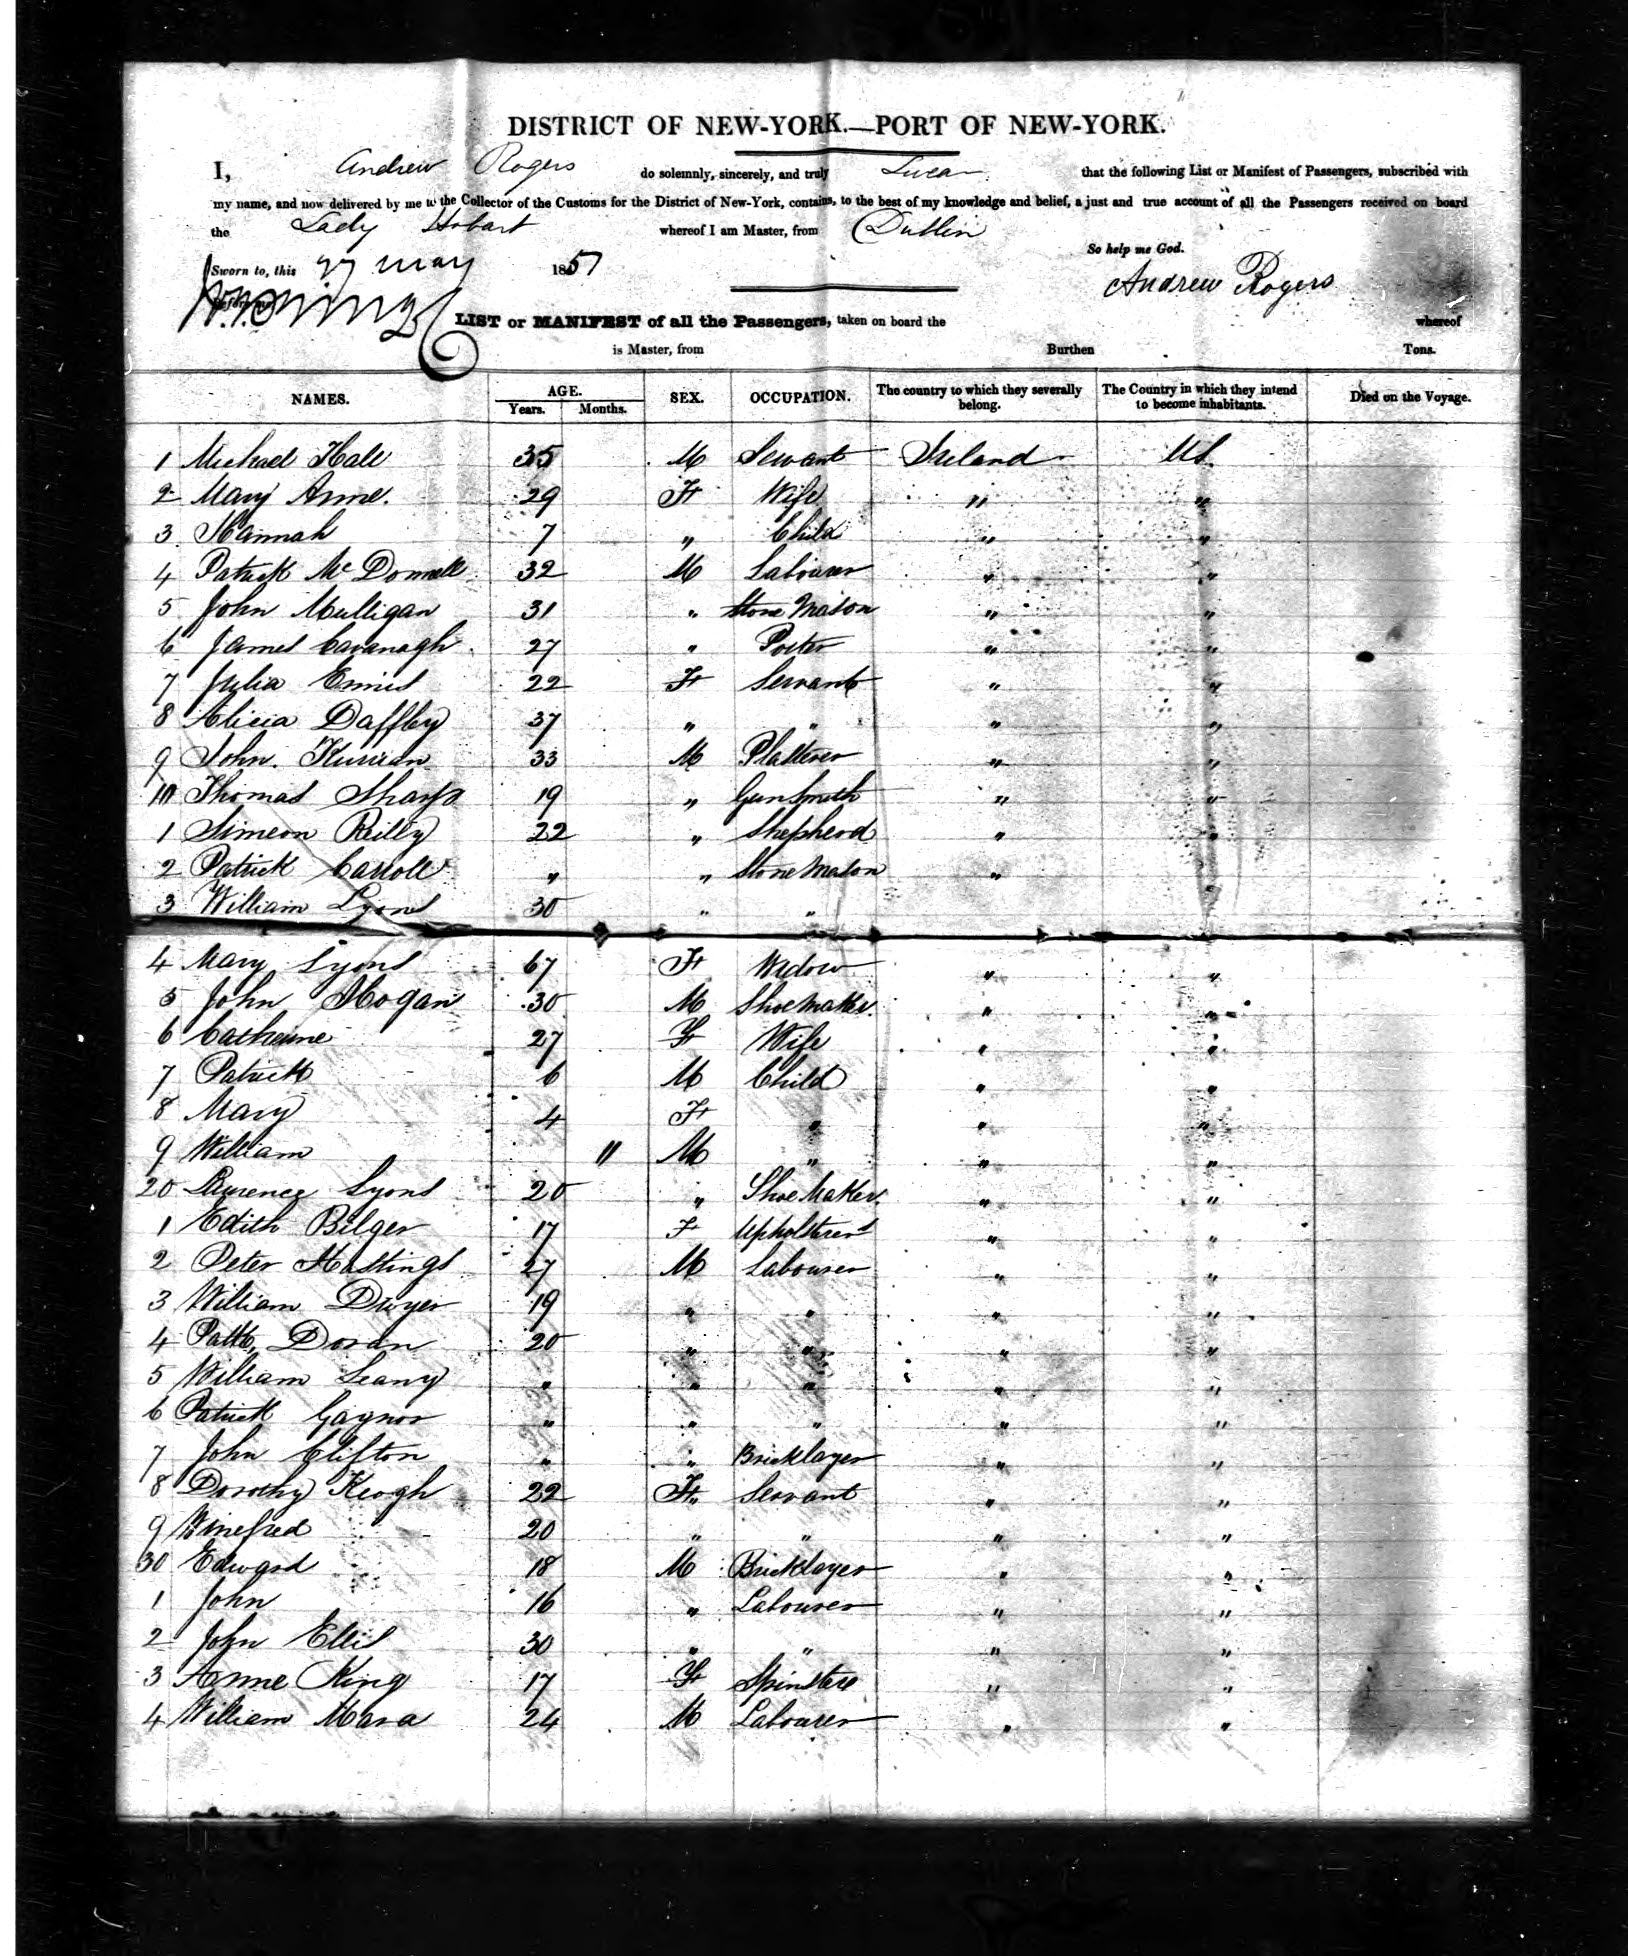 DISTRICT OF NEW-YORK.—PORT OF NEW-YORK.
I, Andrew Rogers do solemnly, sincerely, and truly Swear that the following List or Manifest of Passengers, subscribed with
my name, and now delivered by me to the Collector of the Customs for the District of New-York, contains, to the best of my knowledge and belief, a just and true account of all the Passengers received on board
the Lady Hobart whereof I am Master, from Dublin
So help me God.
Sworn to, this 27 May 1857
Andrew Rogers
Before me
LIST or MANIFEST of all the Passengers, taken on board the whereof
is Master, from Burthen Tons.
NAMES. AGE. Years. Months. SEX. OCCUPATION. The country to which they severally belong. The Country in which they intend to become inhabitants. Died on the Voyage.
1 Michael Hall 35 M Servant Ireland US
2 Mary Anne. 29 F Wife " "
3 Hannah 7 " Child " "
4 Patrick McDonnell 32 M Labourer " "
5 John Mulligan 31 " Stone Mason " "
6 James Cavanagh 27 " Porter " "
7 Julia Ennis 22 F Servant " "
8 Alicia Daffby 37 " " " "
9 John 33 M Platterer " "
10 Thomas Sharp 19 " Gun Smith " "
1 Simeon Reilly 22 " Shepherd " "
2 Patrick Carroll " " Stone Mason " "
3 William Lyons 30 " "
4 Mary Lyons 67 F Widow " "
5 John Hogan 30 M Shoemaker. " "
6 Catherine 27 F Wife " "
7 Patrick 6 M Child " "
8 Mary 4 F " " "
9 William 11 M " " "
20 Laurence Lyons 20 " Shoe Maker. " "
1 Edith Bilger 17 F Upholsteress " "
2 Peter Hastings 27 M Labourer " "
3 William Dwyer 19 " " " "
4 Patk. Doran 20 " " " "
5 William Leany " " " " "
6 Patrick Gaynor " " " " "
7 John Clifton " " Bricklayer " "
8 Dorothy Keogh 22 F Servant " "
9 Winefred 20 " " " "
30 Edward 18 M Bricklayer " "
1 John 16 " Labourer " "
2 John Ellis 30 " " " "
3 Anne King 17 F Spinster " "
4 William Mara 24 M Labourer " "